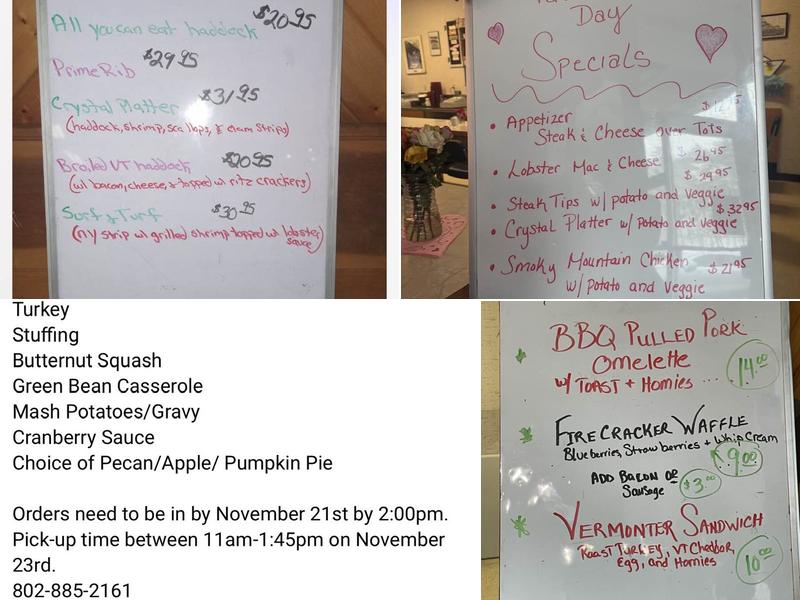 All you can eat haddock $20.95
Prime Rib $29.95
Crystal Platter $31.95
(haddock, shrimp, scallops, & clam strips)
Broiled VT haddock $20.95
(w/ bacon, cheese, & topped w/ ritz crackers)
Surf & Turf $30.95
(ny strip w/ grilled shrimp topped w/ lobster
sauce)
Day
Specials
• Appetizer
Steak & Cheese over Tots
• Lobster Mac & Cheese $26.95
$29.95
• Steak Tips w/ potato and Veggie
$32.95
• Crystal Platter w/ Potato and Veggie
• Smoky Mountain Chicken $21.95
w/ potato and Veggie
Turkey
Stuffing
Butternut Squash
Green Bean Casserole
Mash Potatoes/Gravy
Cranberry Sauce
Choice of Pecan/Apple/ Pumpkin Pie
Orders need to be in by November 21st by 2:00pm.
Pick-up time between 11am-1:45pm on November
23rd.
802-885-2161
BBQ PULLED PORK
Omelette
w/ TOAST + Homies ... 14.00
FIRECRACKER WAFFLE
Blueberries, Strawberries + Whip Cream
9.00
ADD BACON OR
Sausage $3.00
VERMONTER SANDWICH
Roast Turkey, VT Cheddar,
Egg, and Homies 10.00